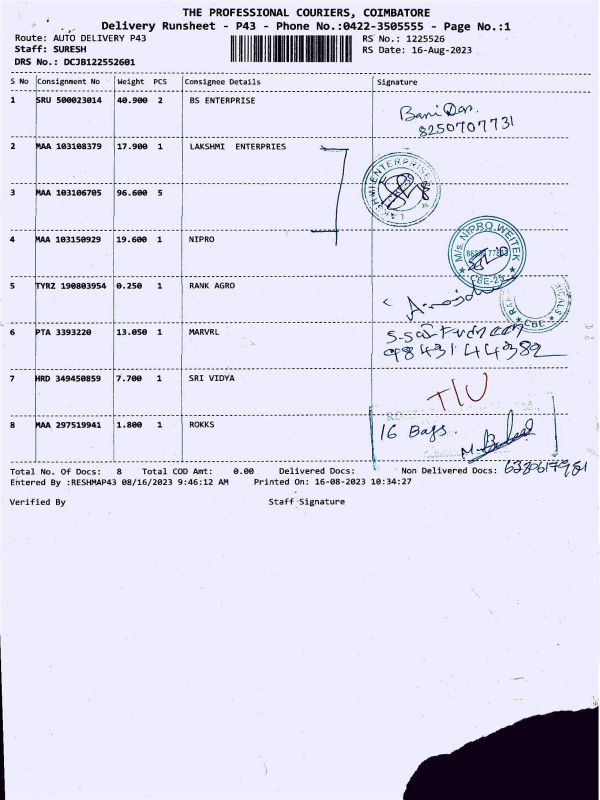 THE PROFESSIONAL COURIERS, COIMBATORE
Delivery Runsheet - P43 - Phone No.:0422-3505555 - Page No.:1
Route: AUTO DELIVERY P43 RS No.: 1225526
Staff: SURESH RS Date: 16-Aug-2023
DRS No.: DCJB122552601
S No Consignment No Weight PCS Consignee Details Signature
1 SRU 500023014 40.900 2 BS ENTERPRISE
8250707731
2 MAA 103108379 17.900 1 LAKSHMI ENTERPRIES
LAKSHMI ENTERPRISE
3 MAA 103106705 96.600 5
4 MAA 103150929 19.600 1 NIPRO
M/s. NIPRO WEITEK
CBE-25
5 TYRZ 190803954 0.250 1 RANK AGRO
CBE
6 PTA 3393220 13.050 1 MARVRL
9843144382
7 HRD 349450859 7.700 1 SRI VIDYA
T/U
8 MAA 297519941 1.800 1 ROKKS
16 Bags.
Total No. Of Docs: 8 Total COD Amt: 0.00 Delivered Docs: Non Delivered Docs:
Entered By :RESHMAP43 08/16/2023 9:46:12 AM Printed On: 16-08-2023 10:34:27
Verified By Staff Signature